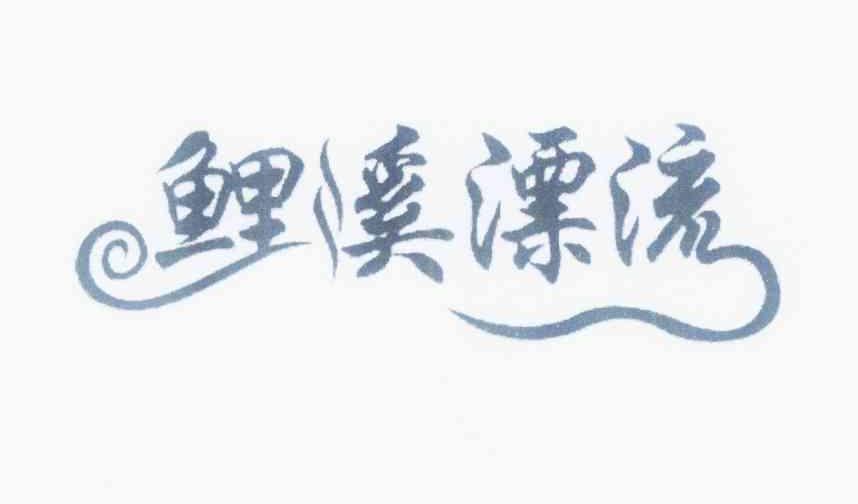 鲤溪漂流